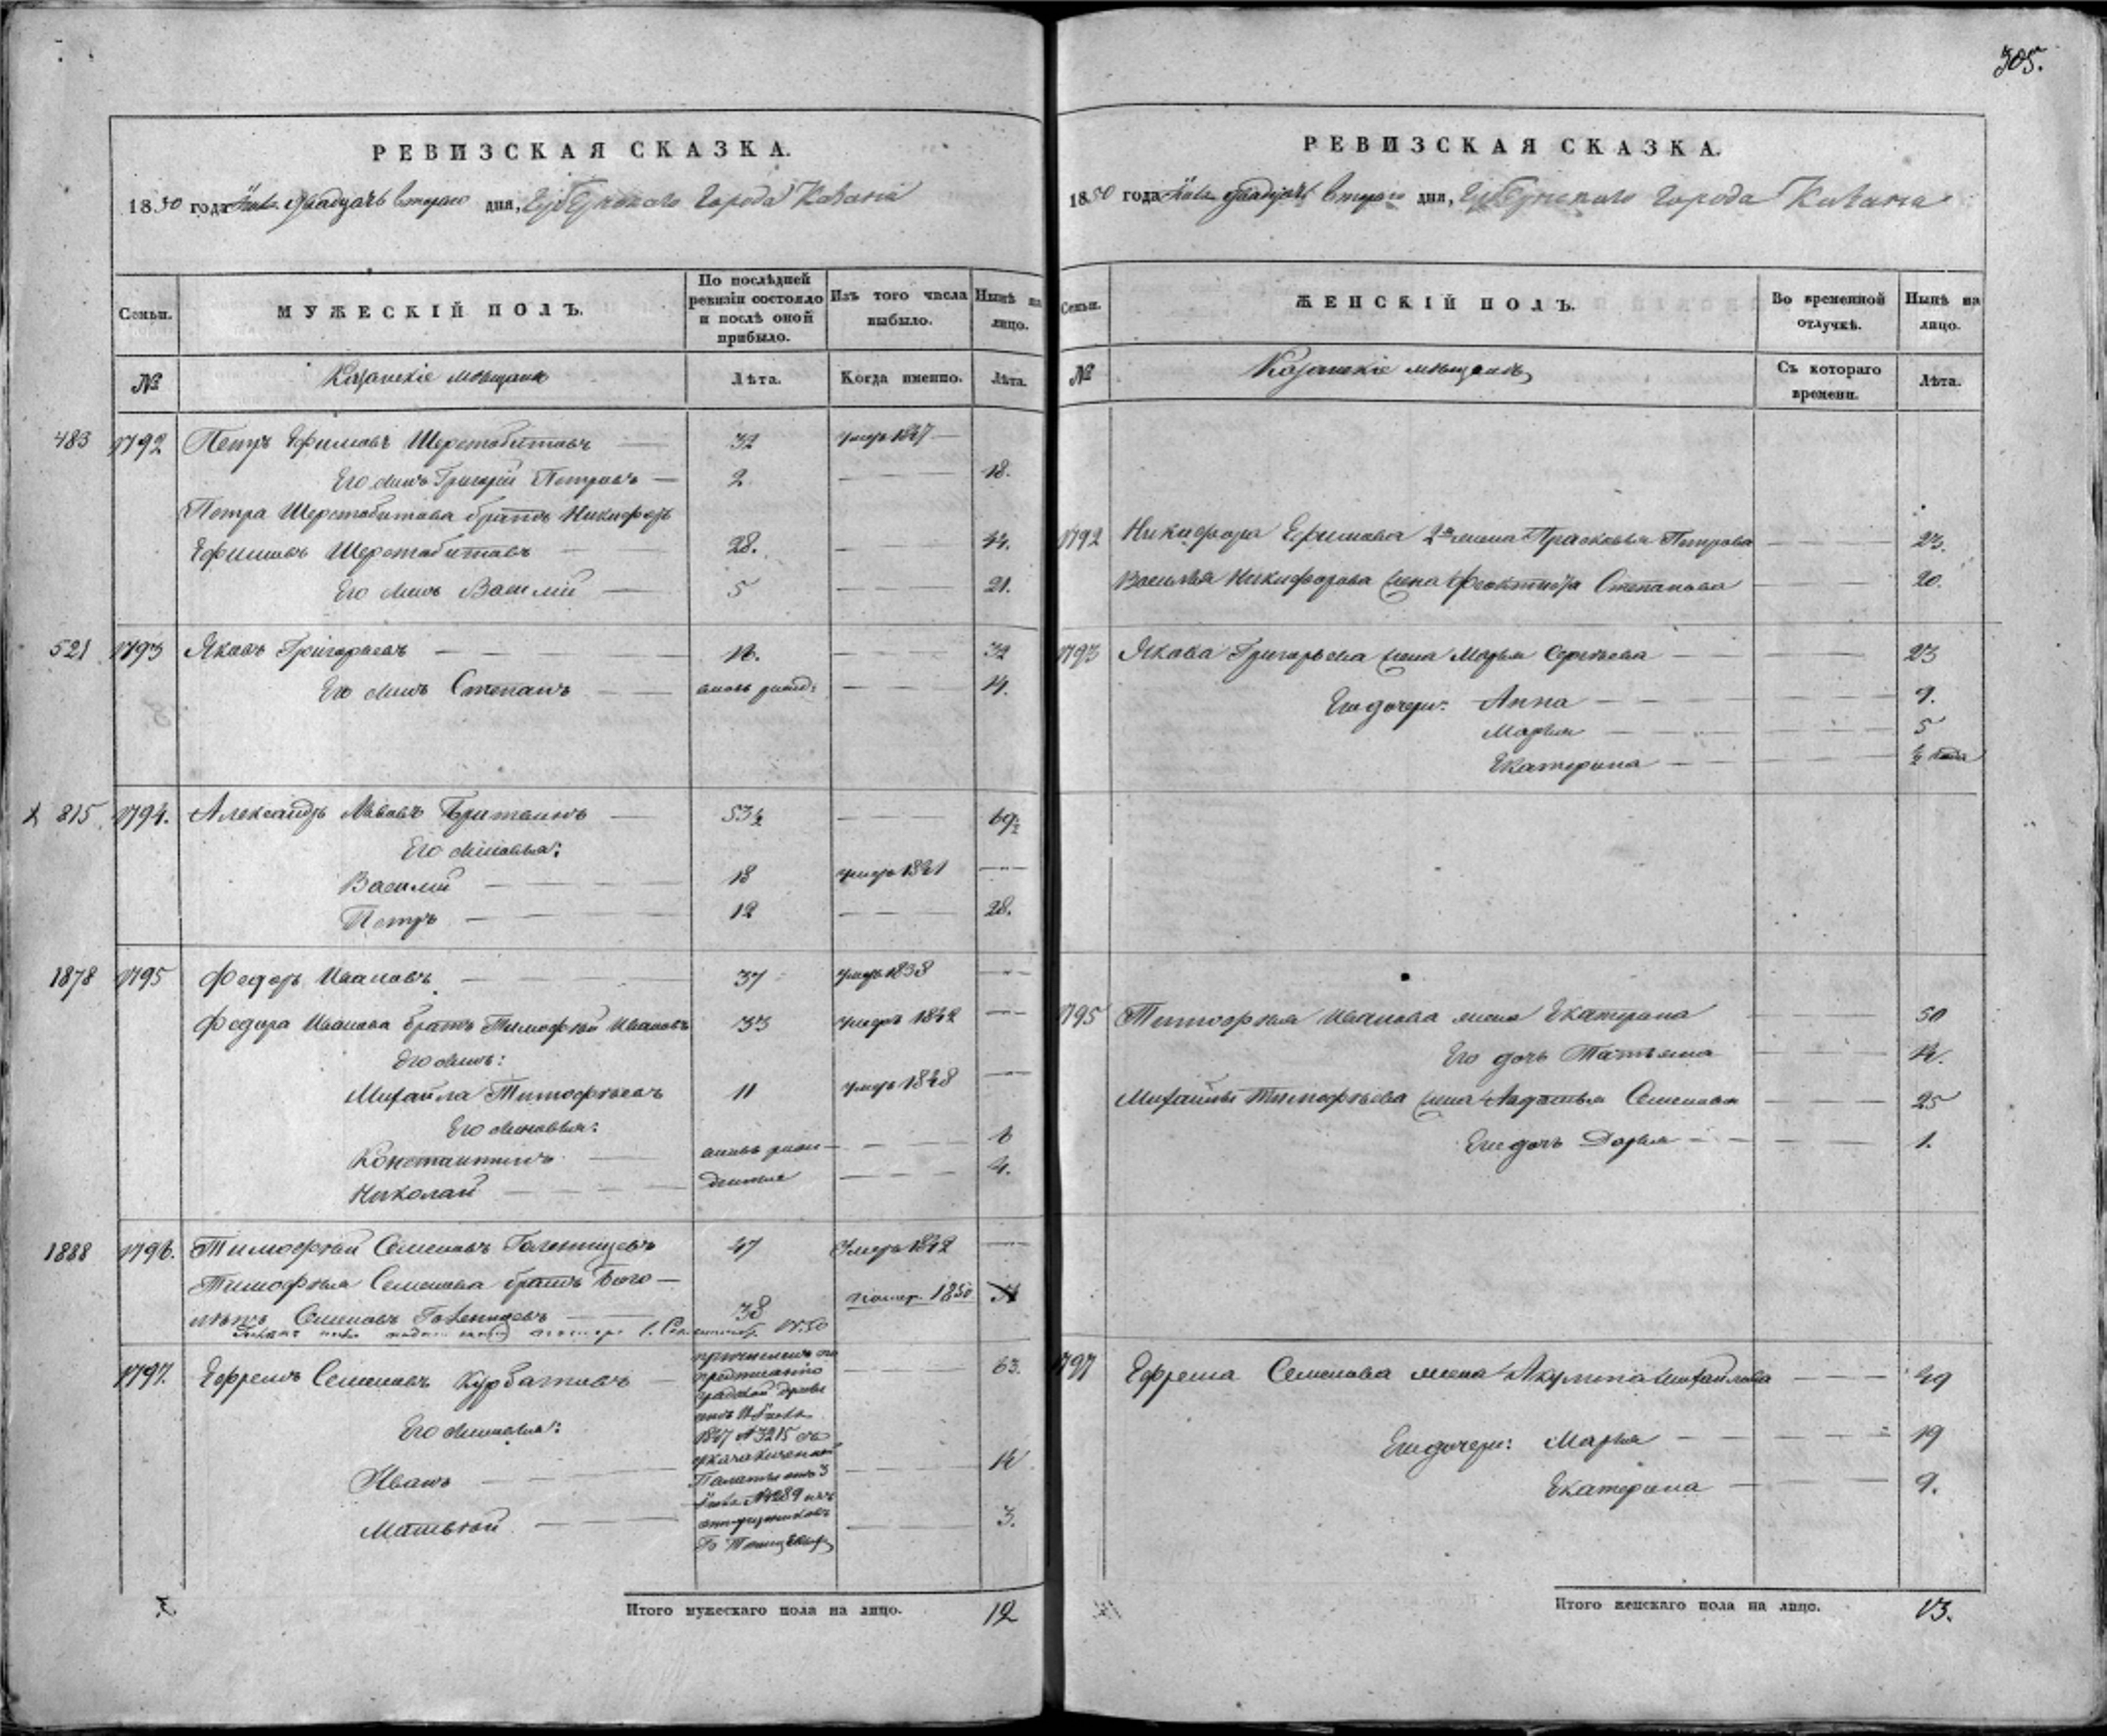 305.
РЕВИЗСКАЯ СКАЗКА.
1850 года Іюля двадцать втораго дня, Губернскаго города Казани
Семьи.
МУЖЕСКІЙ ПОЛЪ.
По послѣдней ревизіи состояло и послѣ оной прибыло.
Изъ того числа выбыло.
Нынѣ на лицо.
№
Казанскіе мѣщане
Лѣта.
Когда именно.
Лѣта.
483 1792 Петръ Ефимовъ Шерстобитовъ 32 умеръ 1847
Его сынъ Григорій Петровъ 2 18.
Петра Шерстобитова братъ Никифоръ
Ефимовъ Шерстобитовъ 28. 44.
Его сынъ Василій 5 21.
521 1793 Яковъ Григорьевъ 16. 32
Его сынъ Степанъ вновь рожд: 4.
815 1794. Александръ Львовъ 53½ 69½
Его сыновья:
Василій 18 умеръ 1841
Петръ 12 28.
1878 1795 Федоръ Ивановъ 37 умеръ 1838
Федора Иванова братъ Тимофѣй Ивановъ 33 умеръ 1842
Его сынъ:
Михайла Тимофѣевъ 11 умеръ 1848
Его сыновья:
Константинъ вновь рож- 6
Николай денные 4.
1888 1796. Тимофѣй Семеновъ 47 Умеръ 1842
Тимофѣя Семенова братъ
Семеновъ 38 1850
1797. Ефремъ Семеновъ Курбатовъ 63.
Его сыновья:
1847 № 3215
Иванъ 14
Палаты отъ 3
Матвѣй 3.
Итого мужескаго пола на лицо. 12
РЕВИЗСКАЯ СКАЗКА.
1850 года Іюля двадцать втораго дня, Губернскаго города Казани
Семьи.
ЖЕНСКІЙ ПОЛЪ.
Во временной отлучкѣ.
Нынѣ на лицо.
№
Казанскіе мѣщане
Съ котораго времени.
Лѣта.
1792 Никифора Ефимова 2я жена Прасковья Петрова 23.
Василья Никифорова жена Феоктиста Степанова 20.
1793 Якова Григорьева жена Марья Сергѣева 23
Его дочери: Анна 9.
Марья 5
Екатерина ½ года
1795 Тимофѣя Иванова жена Екатерина 50
Его дочь Татьяна 14.
Михайлы Тимофѣева жена Авдотья Семенова 25
Его дочь Дарья 1.
1797 Ефрема Семенова жена Акулина Михайлова 49
Его дочери: Марья 19
Екатерина 9.
Итого женскаго пола на лицо. 13.